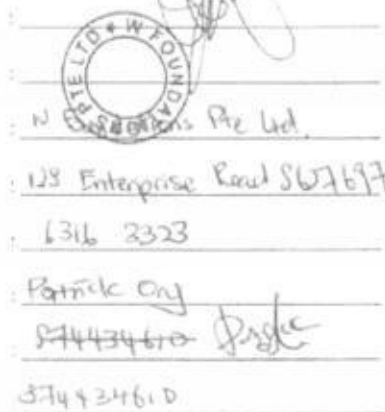 PTE LTD & W FOUNDATIONS
N Pte Ltd.
129 Enterprise Road S627697
6316 2323
Patrick Ong
S7443461D
S7443461D